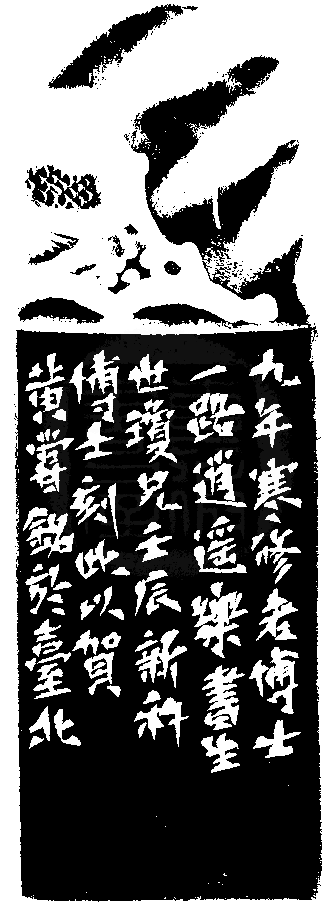 九年寒修老博士
一路逍遥樂書生
世瓊兄壬辰新科
博士刻此以賀
黃嘗銘於臺北